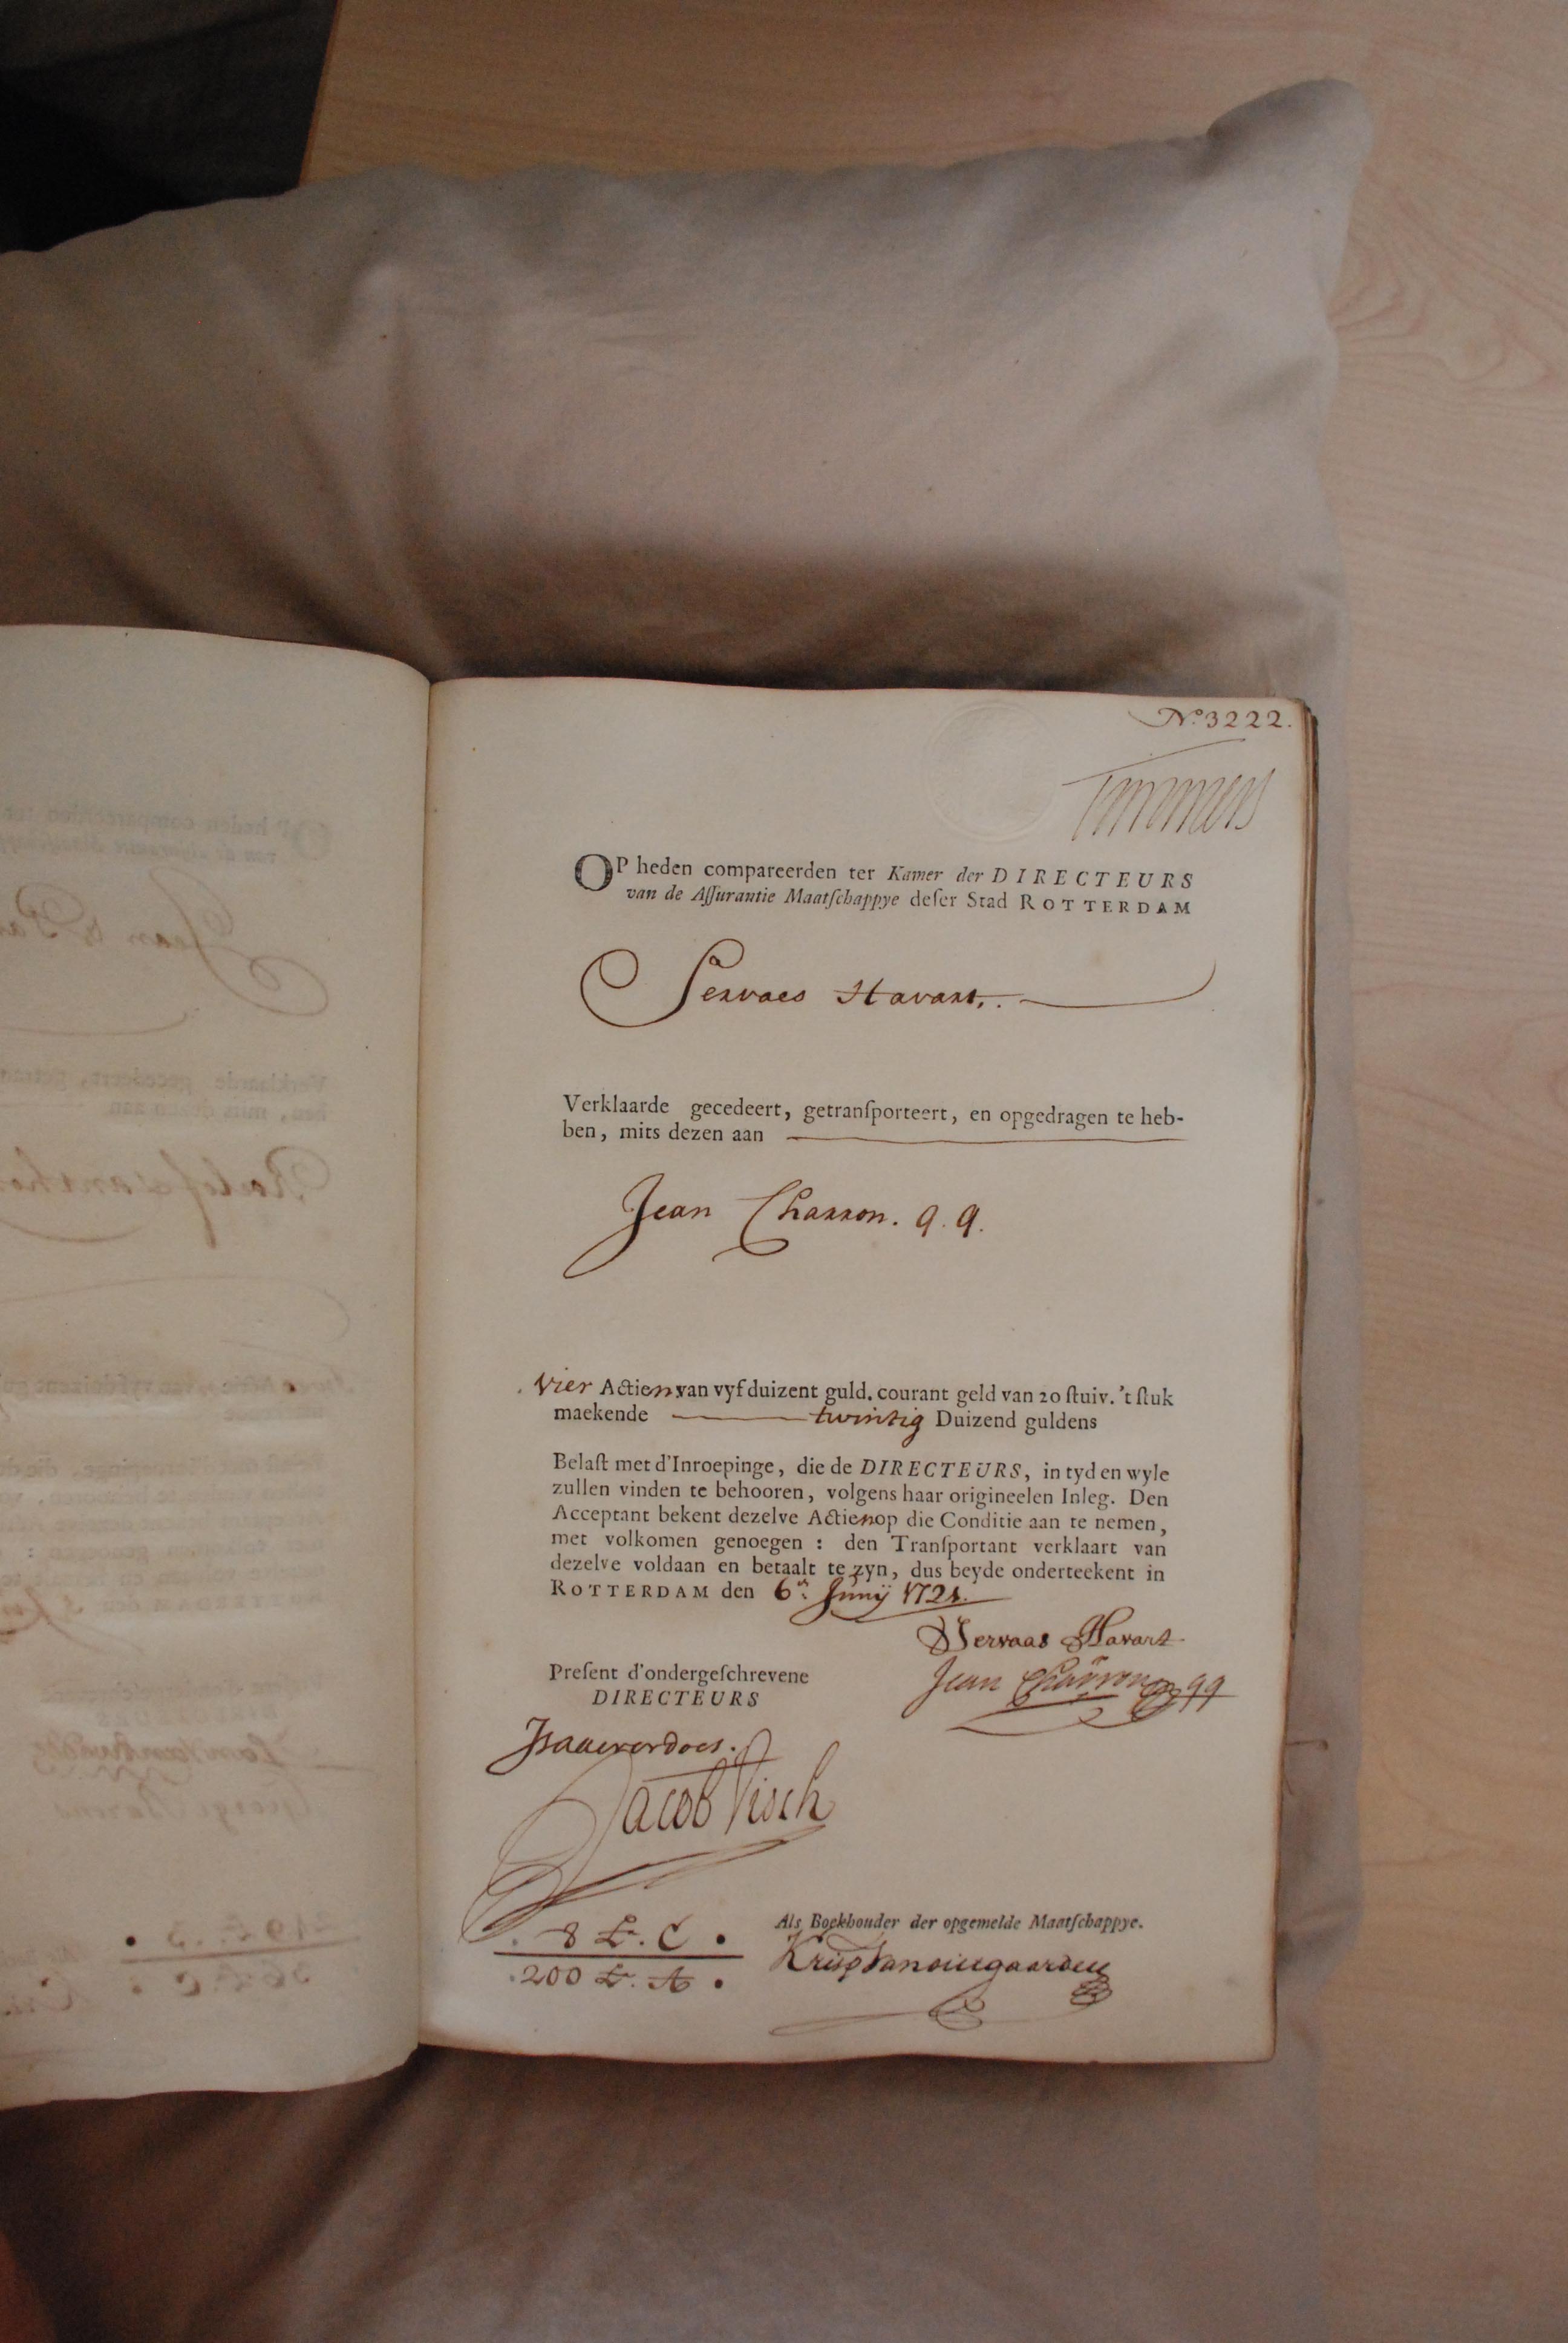 No. 3222.
Timmers
OP heden compareerden ter Kamer der DIRECTEURS
van de Assurantie Maatschappye deser Stad ROTTERDAM
Servaes Havart.
Verklaarde gecedeert, getransporteert, en opgedragen te heb-
ben, mits dezen aan
Jean Charron. q.q.
Vier Actien van vyf duizent guld. courant geld van 20 stuiv. 't stuk
maekende twintig Duizend guldens
Belast met d'Inroepinge, die de DIRECTEURS, in tyd en wyle
zullen vinden te behooren, volgens haar origineelen Inleg. Den
Acceptant bekent dezelve Actien op die Conditie aan te nemen,
met volkomen genoegen : den Transportant verklaart van
dezelve voldaan en betaalt te zyn, dus beyde onderteekent in
ROTTERDAM den 6en Junij 1721.
Servaas Havart
Jean Charron qq
Present d'ondergeschrevene
DIRECTEURS
Jacob Visch
8 L. C.
200 L. A.
Als Boekhouder der opgemelde Maatschappye.